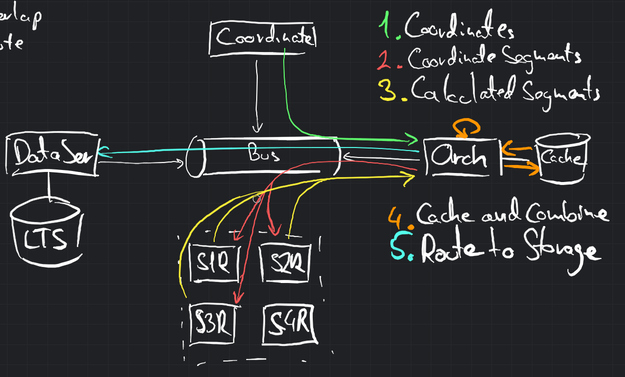 Coordinate
1. Coordinates
2. Coordinate Segments
3. Calclated Segments
DataSer
Bus
Arch
Cache
LTS
4. Cache and Combine
5. Route to Storage
S1R
S2R
S3R
S4R